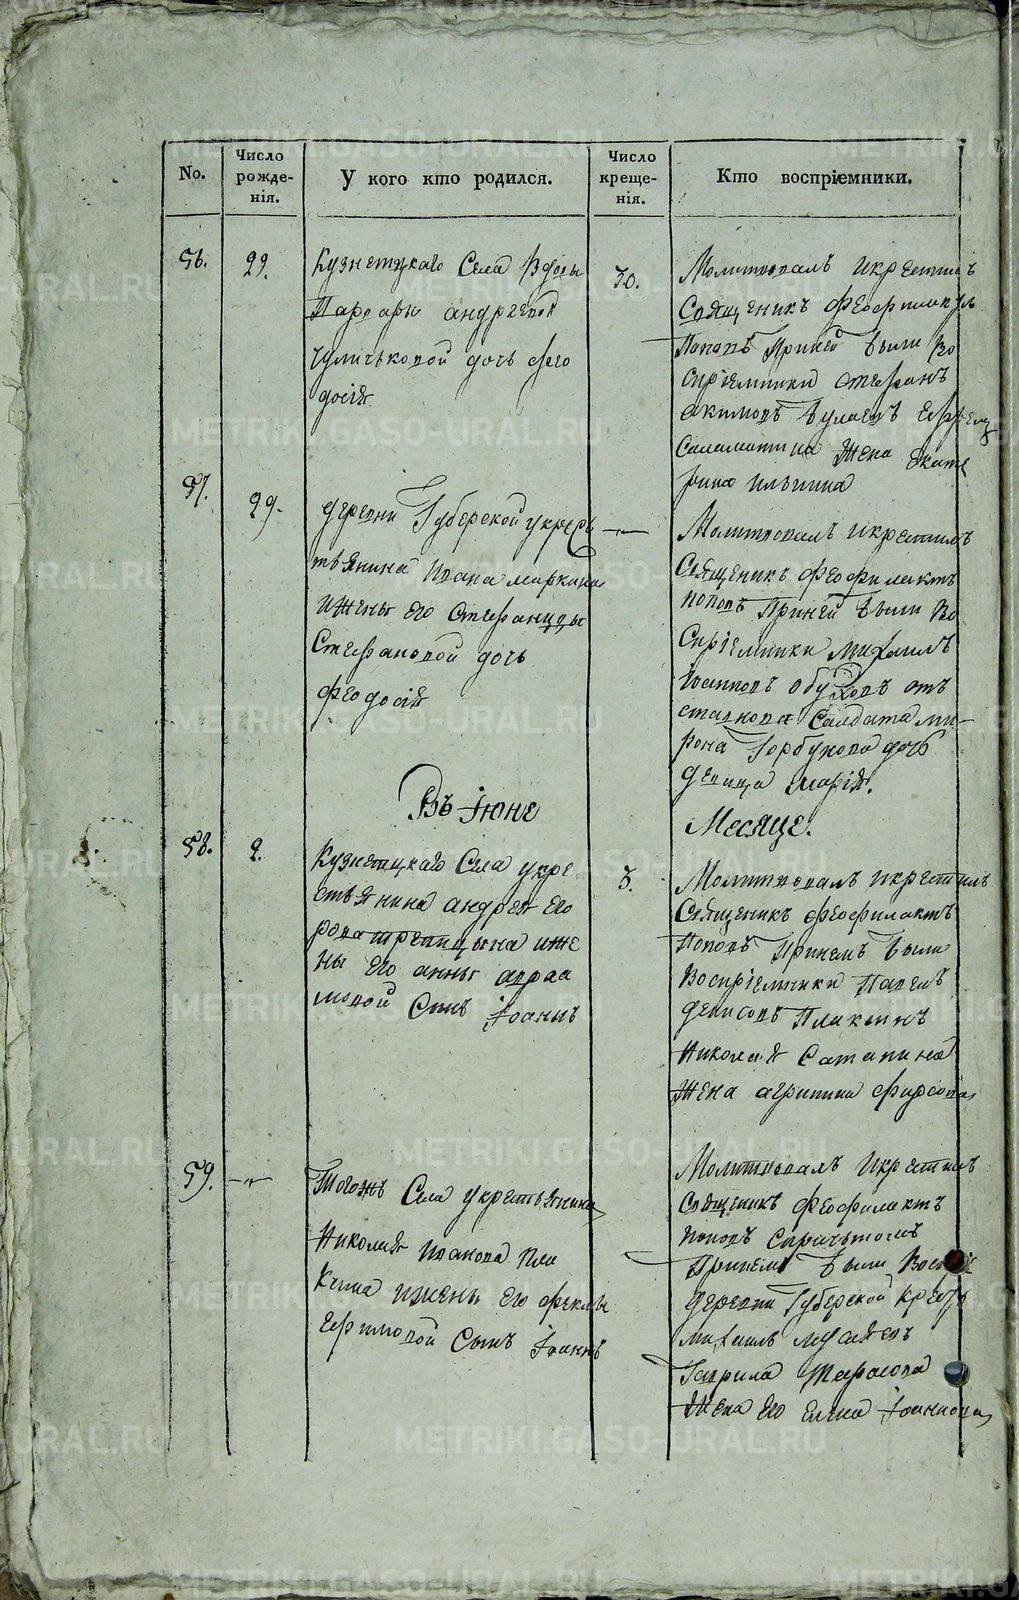 No.
Число
рожде-
нія.
У кого кто родился.
Число
креще-
нія.
Кто воспріемники.
56.
29.
Кузнетцкаго Села Вдовы
Варвары андреевой
чуличьковой дочь фео
досія
30.
Молитвовалъ икрестилъ
Священикъ Феофилактъ
Поповъ Приней были Во
спріемники стефанъ
акимовъ
Саламатина Жена Екате
рина ильина
57.
29.
деревни Губерской укресь
тьянина ивана маркина
ижены его Стефаниды
Стефановой дочь
феодосія
Молитвовалъ икрестилъ
Священикъ феофилактъ
поповъ Приней были Во
Спріемники михаилъ
Іоанновъ обуховъ от
ставнова Салдата ми-
рона Горбунова дочь
девица марія.
Въ Іюне
Месяце.
58.
2.
Кузнетцкаго Села укре
стьянина андрея его
рова третицына иже
ны его анны авраа
мовой Сынъ Іоаннъ
3.
Молитвовалъ икрестилъ
Священикъ феофилактъ
Поповъ Принемъ были
Воспріемники Павелъ
денисовъ Плаксинъ
Николая Сатанина
Жена агрипина фирсова
59.
Тогожъ Села укрестьянина
Николая иванова Пла
ксина ижены его феклы
ефимовой Сынъ Іоаннъ
Молитвовалъ икрестилъ
Священикъ феофилактъ
поповъ Спричьтомъ
Принемъ были
деревни Губерской
михаилъ
Гаврила Тарасова
Жена его елена Іоаннова
METRIKI.GASO-URAL.RU